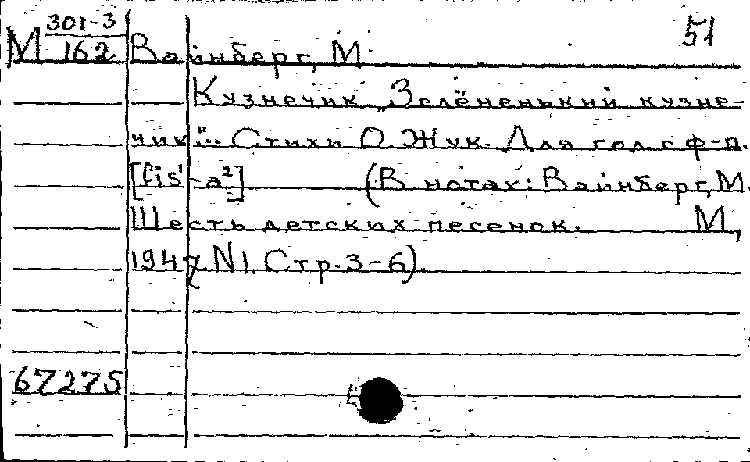 301-3
М 162 Вайнберг, М. 51
Кузнечик „Зелёненький кузне-
чик"... Стихи О. Жук. Для гол. с ф-п.
[fis¹-a²] (В нотах: Вайнберг, М.
Шесть детских песенок. М.,
1947. N1. Стр. 3-6).
67275